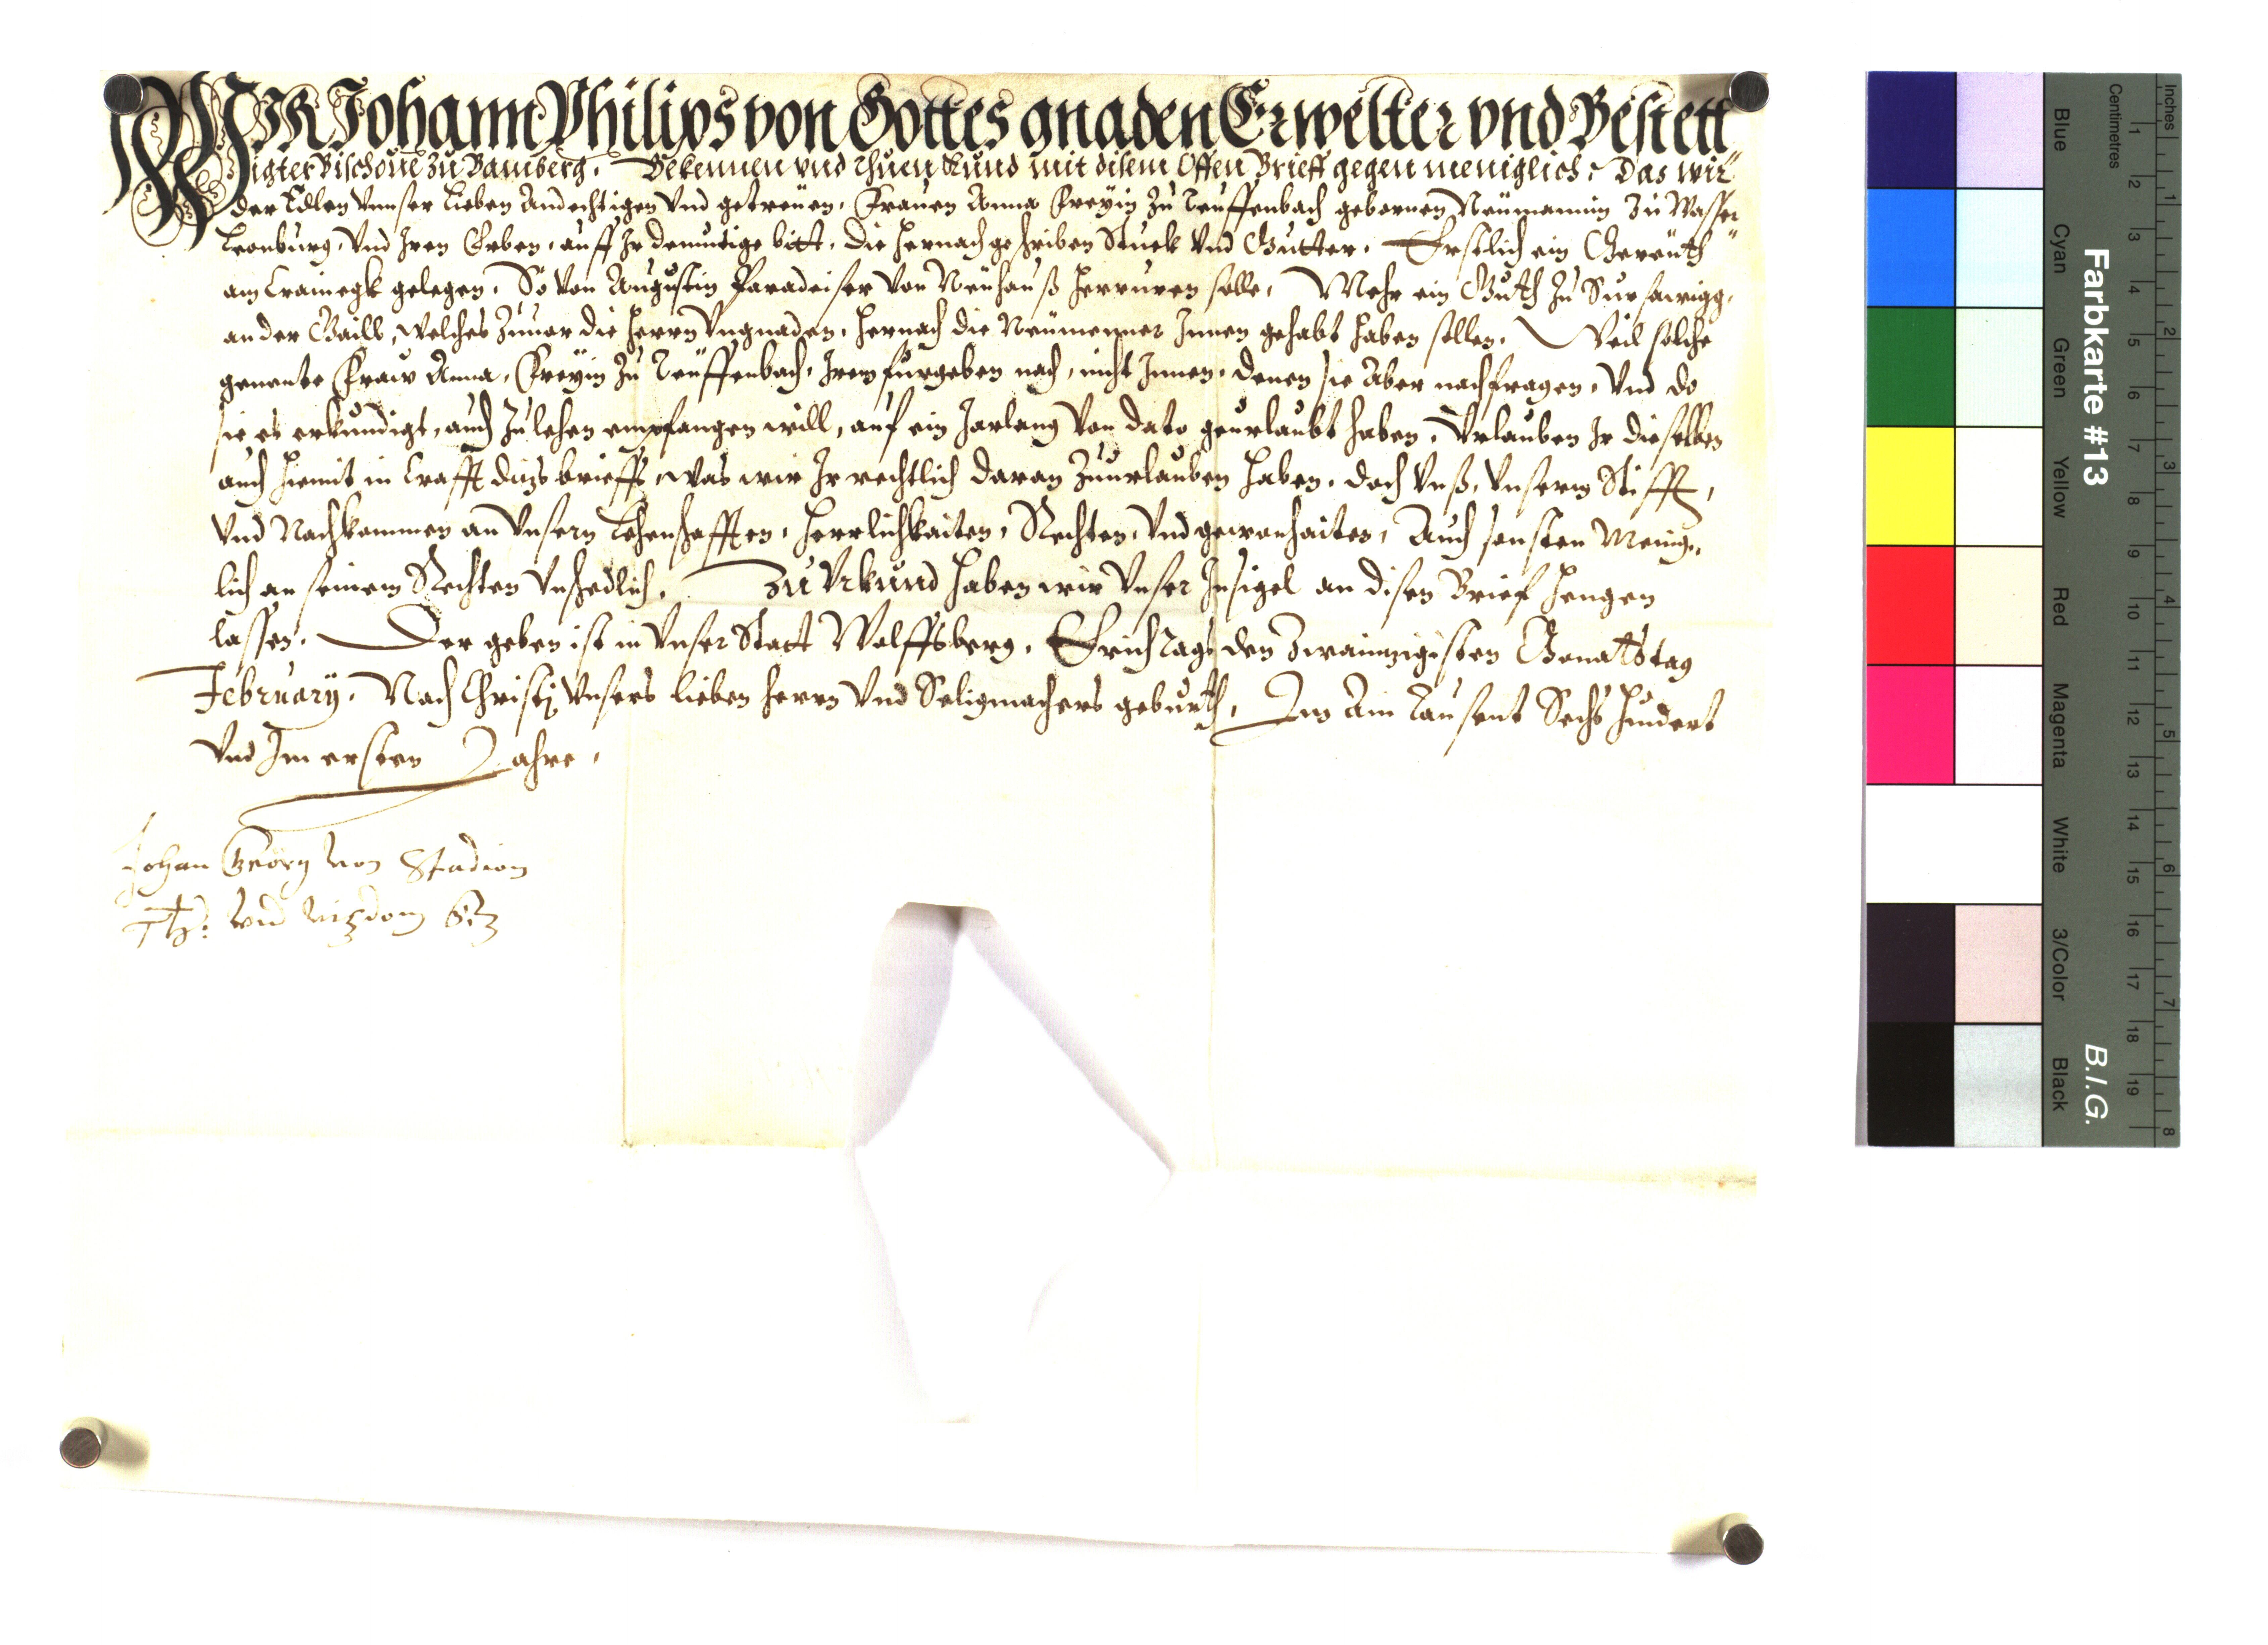 WIR Johann Philips von Gottes gnaden Erwelter vnd Bestett
igter Bischoue zu Bamberg. Bekennen vnd Thuen Kund mit disem Offen Brieff gegen meniglich, Das wir
der Edlen Vnnser Lieben Andechtigen Vnd getreüen, Frauen Anna Freÿin Zu Teuffenbach gebornen Neümannin Zu Wasser
Leonburg, Vnd Iren Erben, auff Ir demutige bitt, die hernach geschriben Stuck Vnd Gutter. Erstlich ein Gereüth
am Crainegk gelegen, So von Augustin Paradeiser von Neühauß herruren solle, Mehr ein Guth Zu
an der Gaill, welches Zuuor die Herrn Vngnaden, hernach die Neümenner Innen gehabt haben sollen. Weil solche
genante Fraw Anna, Freÿin Zu Teüffenbach, Irem furgeben nach, nicht Innen, denen sie Aber nachfragen, Vnd do
sie es erkundigt, auch Zu lehen empfangen will, auf ein Jarlang von dato geurlaubt haben, Vrlauben Ir dieselben
auch hiemit in Crafft diczs brieffs, was wir Ir rechtlich daran Zuurlauben haben. doch Vnß, Vnserm Stifft,
Vnd Nachkommen an Vnsern Lehenschafften, Herrlichkaiten, Rechten, Vnd gewonhaiten, Auch sonsten Menig-
lich an seinem Rechten Vnschedlich. Zu Vrkund haben wir Vnser Insigel an disen Brief hengen
lassen. Der geben ist in Vnser Statt Wolffsberg, Erichtags den Zwainzigisten Monatstag
February. Nach Christi Vnsers lieben Herrn Vnd Seligmachers geburth, Im Ain Tausent Sechs hundert
Vnd Im ersten Jahre.
Johan Georg von Stadion
vnd vizdom
Farbkarte #13
B.I.G.
Inches
Centimetres
1 2 3 4 5 6 7 8 9 10 11 12 13 14 15 16 17 18 19
1 2 3 4 5 6 7 8
Blue
Cyan
Green
Yellow
Red
Magenta
White
3/Color
Black